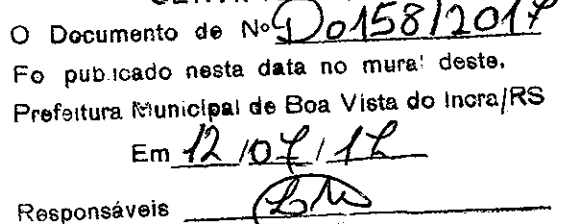 O Documento de Nº D0158/2017
Fo pub.icado nesta data no mura! deste,
Prefeitura Municipal de Boa Vista do Incra/RS
Em 12/07/17
Responsáveis